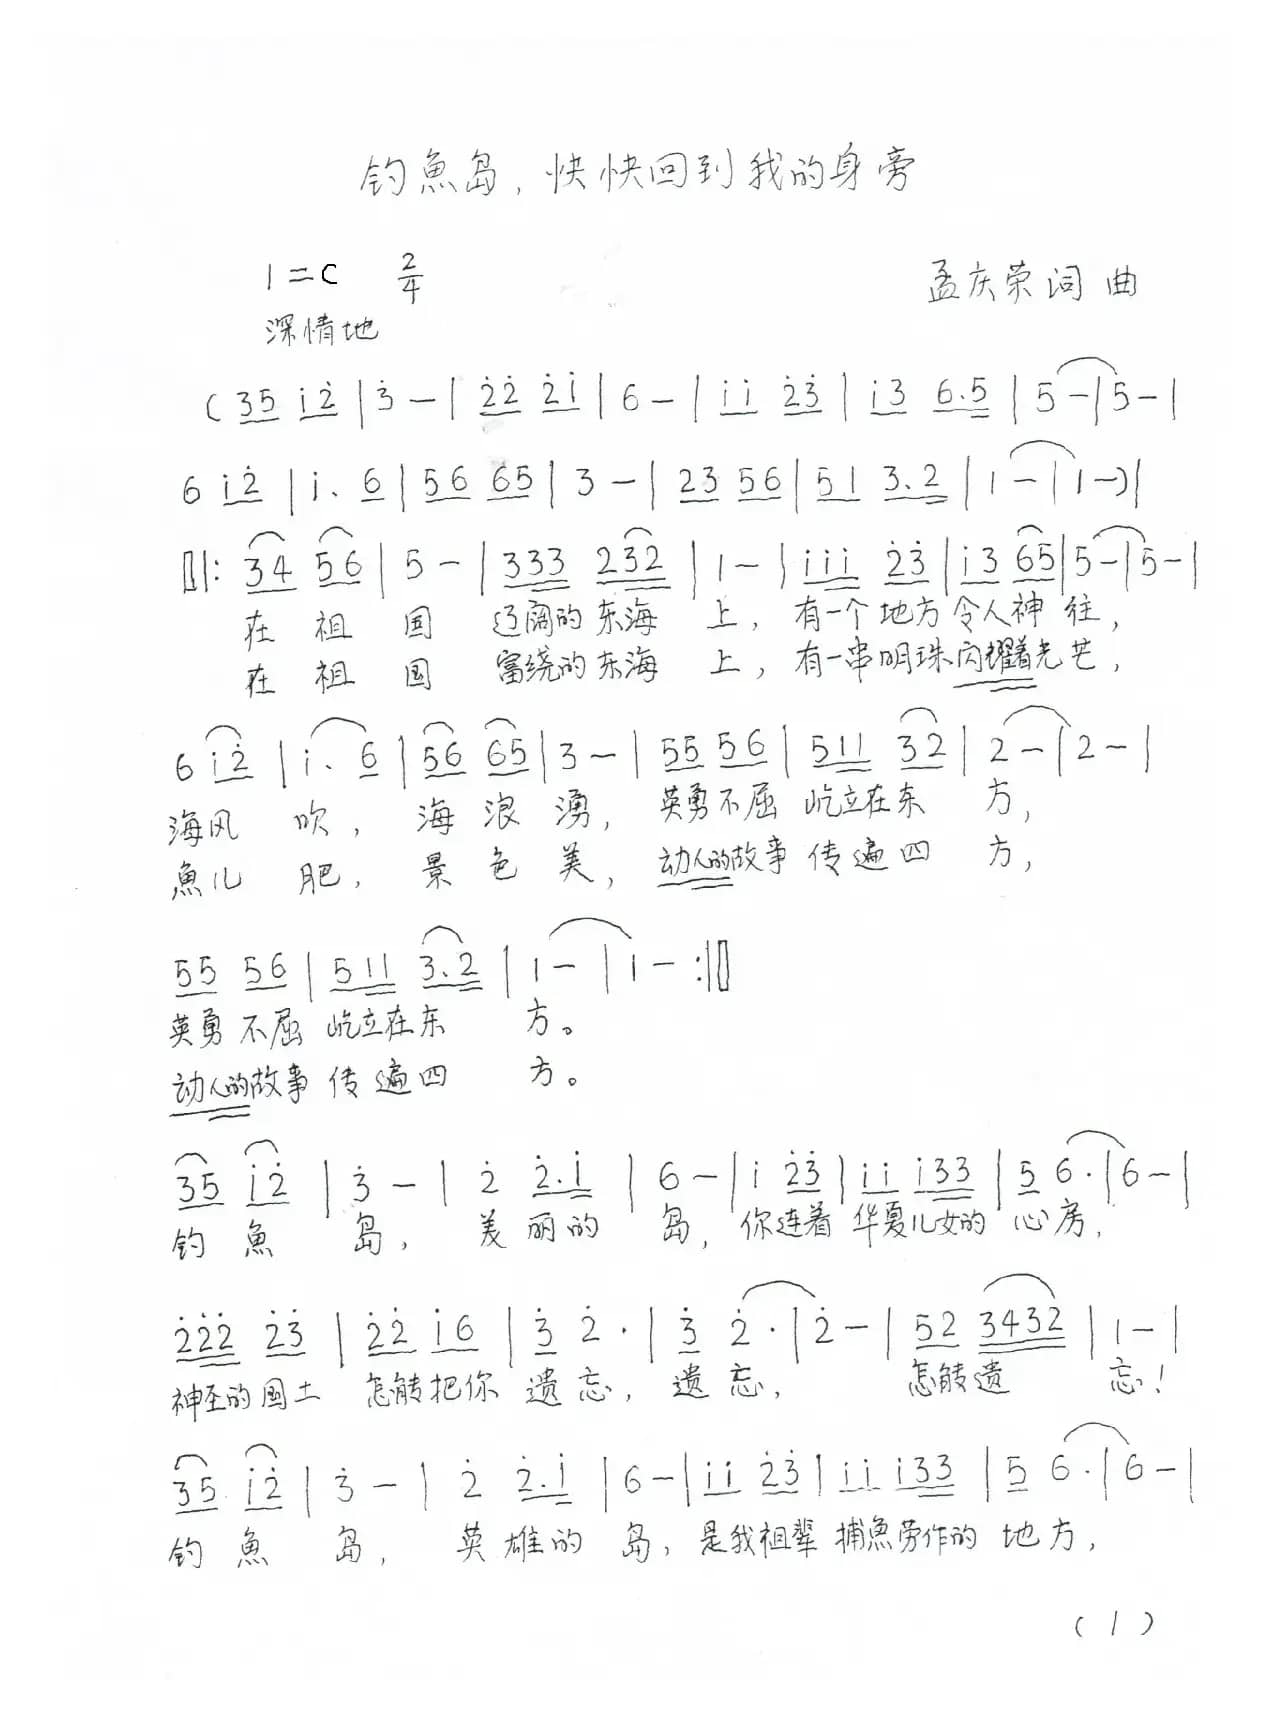 钓魚岛，快快回到我的身旁
1=C 2/4 孟庆荣词曲
深情地
(35 i̇2̇ | 3̇ - | 2̇2̇ 2̇i̇ | 6 - | i̇i̇ 2̇3̇ | i̇3 6.5 | 5 - | 5 - |
6 i̇2̇ | i̇. 6 | 56 65 | 3 - | 23 56 | 51 3.2 | 1 - | 1 -) |
‖: 34 56 | 5 - | 333 232 | 1 - | i̇i̇i̇ 2̇3̇ | i̇3 65 | 5 - | 5 - |
在祖国辽阔的东海上，有一个地方令人神往，
在祖国富绕的东海上，有一串明珠闪耀着光芒，
6 i̇2̇ | i̇. 6 | 56 65 | 3 - | 55 56 | 511 32 | 2 - | 2 - |
海风吹，海浪湧，英勇不屈屹立在东方，
魚儿肥，景色美，动人的故事传遍四方，
55 56 | 511 3.2 | 1 - | 1 - :‖
英勇不屈屹立在东方。
动人的故事传遍四方。
35 i̇2̇ | 3̇ - | 2̇ 2̇.i̇ | 6 - | i̇ 2̇3̇ | i̇i̇ i̇33 | 5 6. | 6 - |
钓魚岛，美丽的岛，你连着华夏儿女的心房，
2̇2̇2̇ 2̇3̇ | 2̇2̇ i̇6 | 3̇ 2̇. | 3̇ 2̇. | 2̇ - | 52 3432 | 1 - |
神圣的国土怎能把你遗忘，遗忘，怎能遗忘！
35 i̇2̇ | 3̇ - | 2̇ 2̇.i̇ | 6 - | i̇i̇ 2̇3̇ | i̇i̇ i̇33 | 5 6. | 6 - |
钓魚岛，英雄的岛，是我祖辈捕魚劳作的地方，
(1)